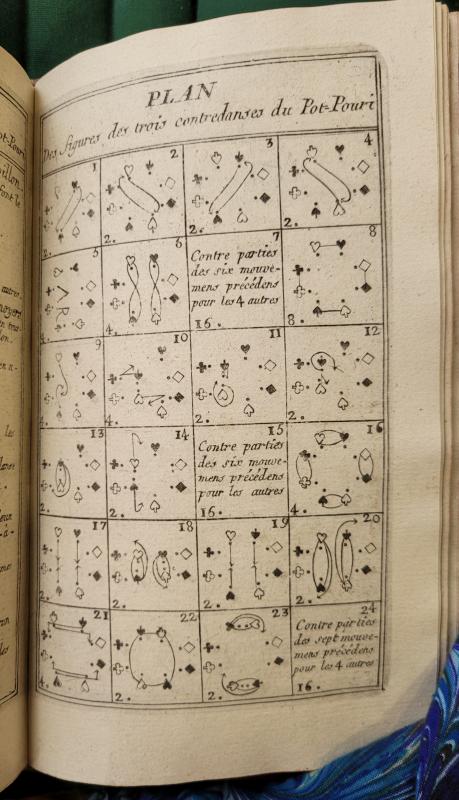 PLAN
Des figures des trois contredanses du Pot-Pouri
1
2
3
4
2.
2.
2.
2.
5
6
7
8
Contre parties
des six mouve-
mens précédens
pour les 4 autres
4.
4.
16.
8.
9
10
11
12
4.
4.
2.
2.
13
14
15
16
Contre parties
des six mouve-
mens précédens
pour les autres
2.
2.
16.
4.
17
18
19
20
2.
2.
2.
2.
21
22
23
24
Contre parties
des sept mouve-
mens précédens
pour les 4 autres
4.
2.
2.
16.